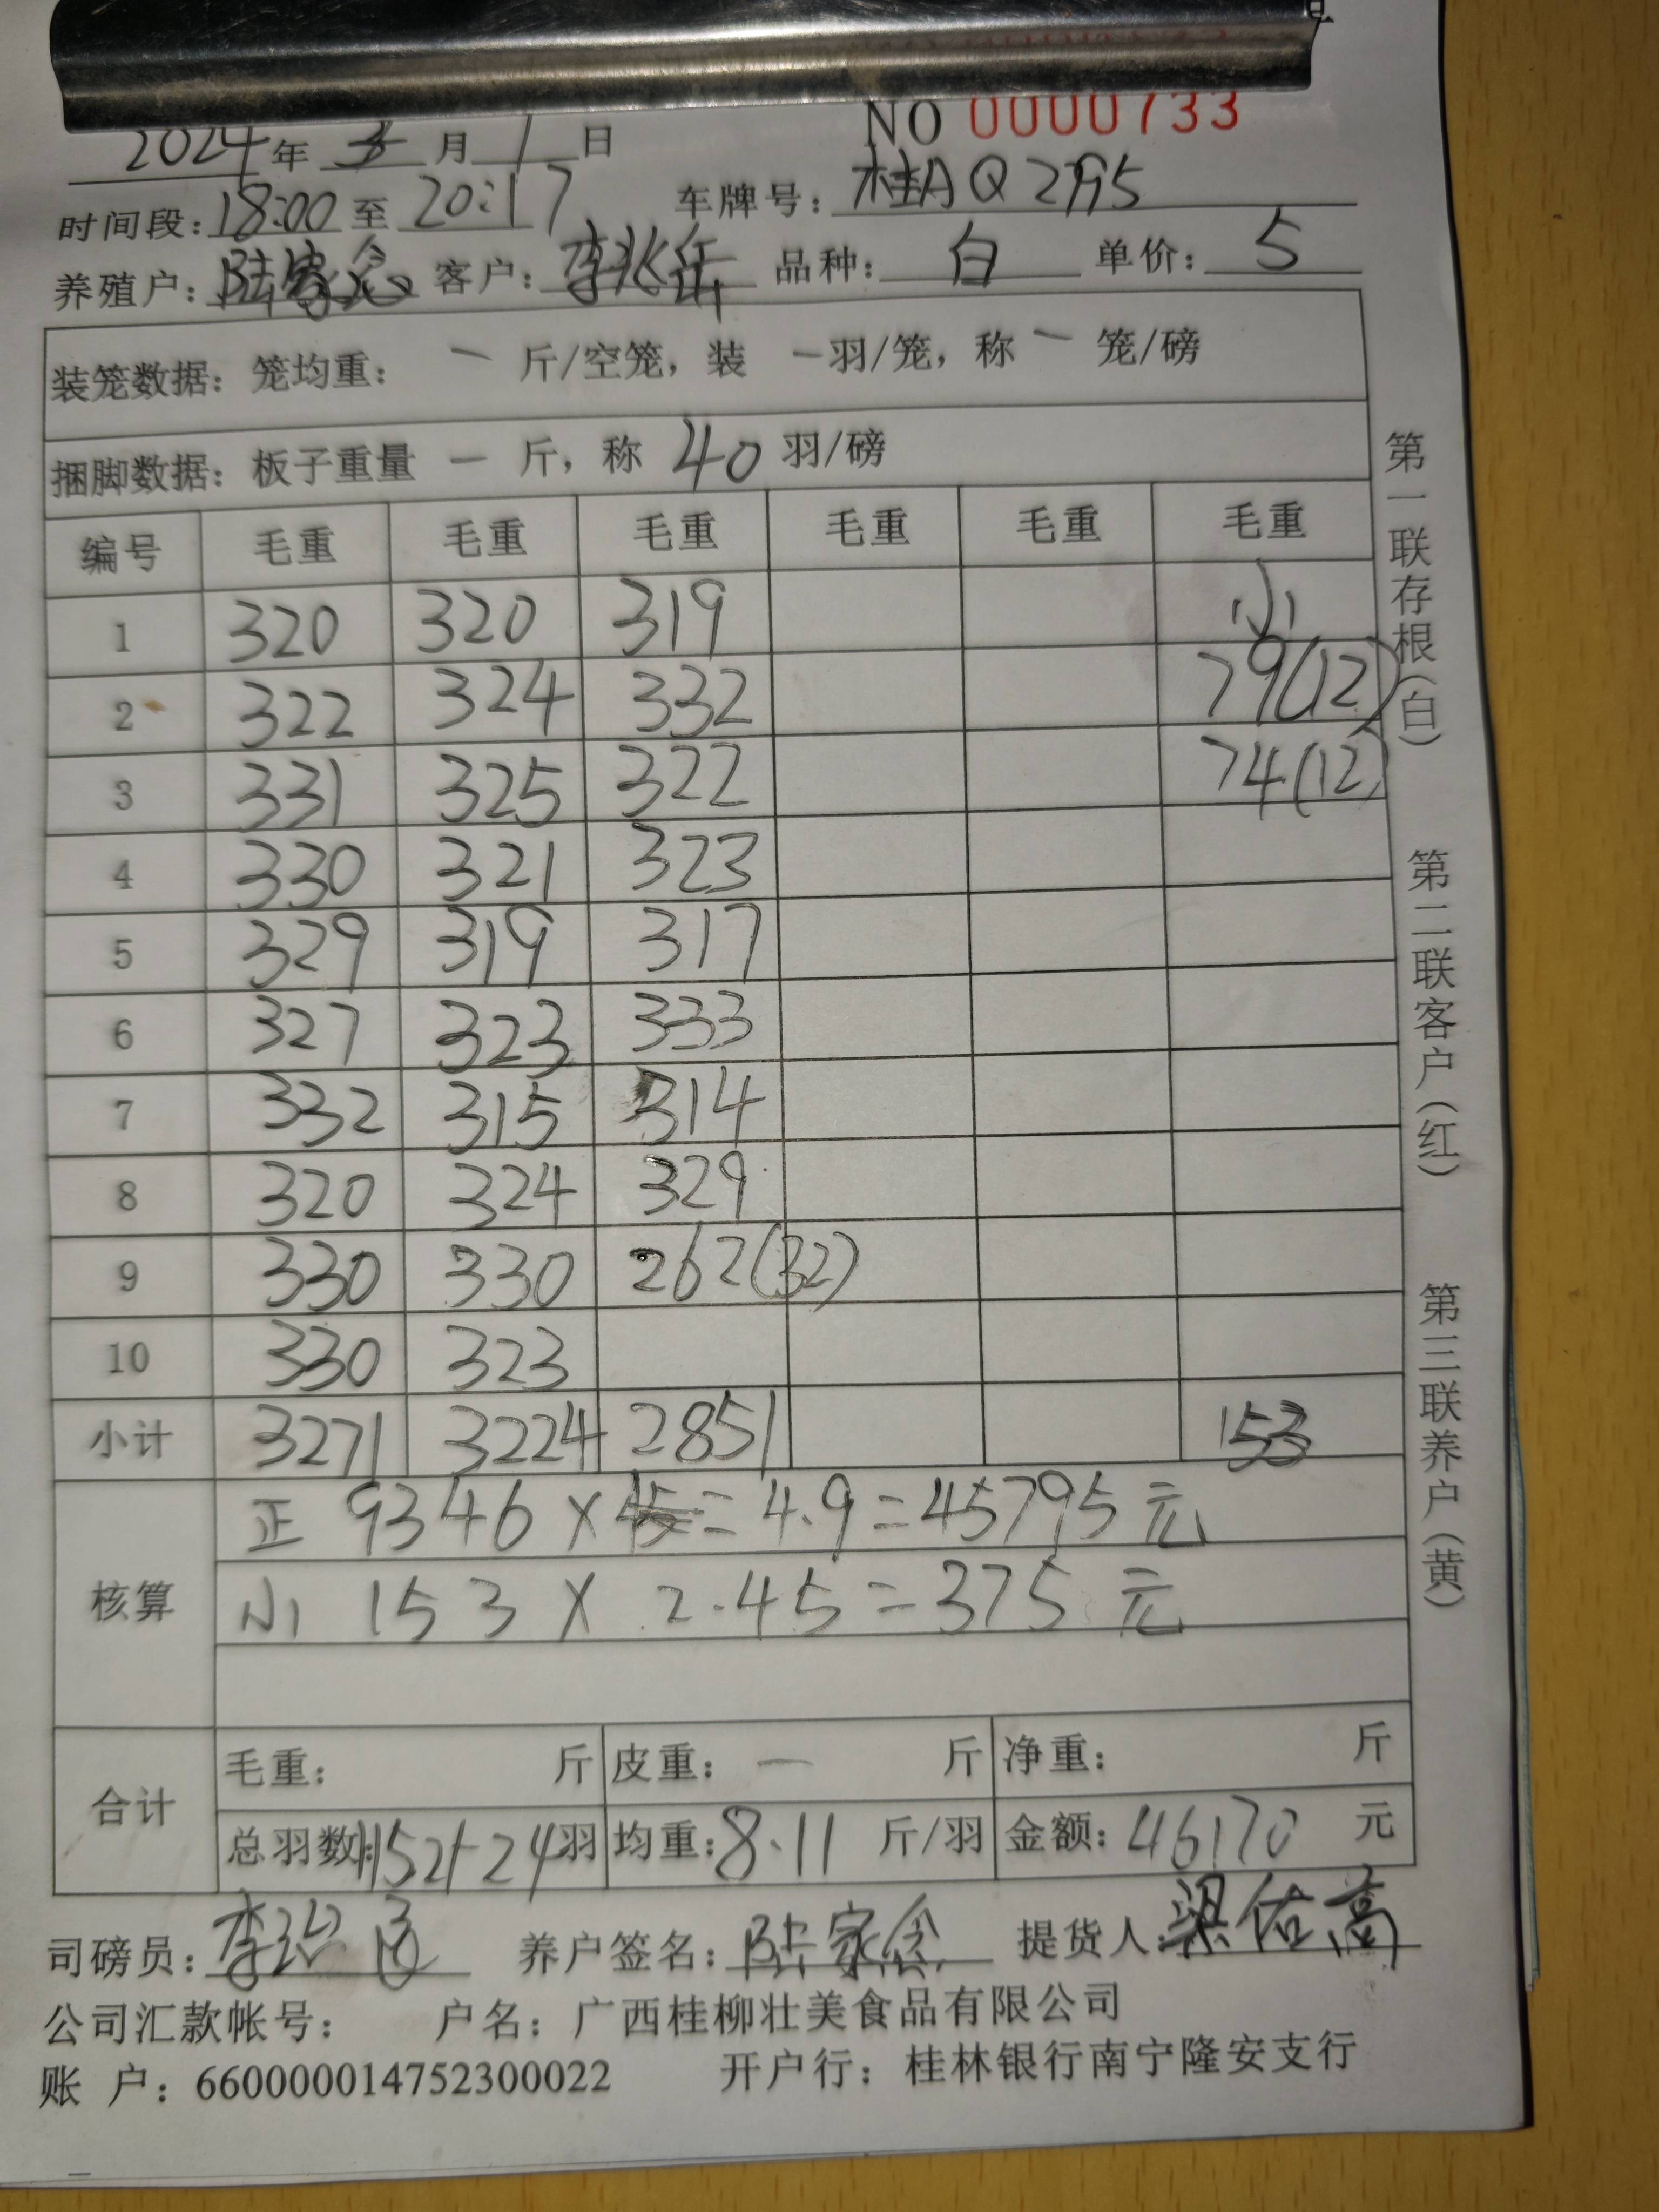 NO 0000733
2024年 3 月 1 日
时间段: 18:00 至 20:17 车牌号: 桂AQ2795
养殖户: 陆家念 客户: 李兆岳 品种: 白 单价: 5
装笼数据: 笼均重: 一 斤/空笼, 装 一羽/笼, 称 一 笼/磅
捆脚数据: 板子重量 一 斤, 称 40 羽/磅
编号 毛重 毛重 毛重 毛重 毛重 毛重
1 320 320 319 小
2 322 324 332 79(12)
3 331 325 322 74(12)
4 330 321 323
5 329 319 317
6 327 323 333
7 332 315 314
8 320 324 329
9 330 330 262(32)
10 330 323
小计 3271 3224 2851 153
核算
正 9346 × = 4.9 = 45795 元
小 153 × 2.45 = 375 元
合计
毛重: 斤 皮重: 一 斤 净重: 斤
总羽数: 1152+24羽 均重: 8.11 斤/羽 金额: 46170 元
司磅员: 李 养户签名: 陆家念 提货人: 梁佑高
公司汇款帐号: 户名: 广西桂柳壮美食品有限公司
账 户: 660000014752300022 开户行: 桂林银行南宁隆安支行
第一联存根(白)
第二联客户(红)
第三联养户(黄)